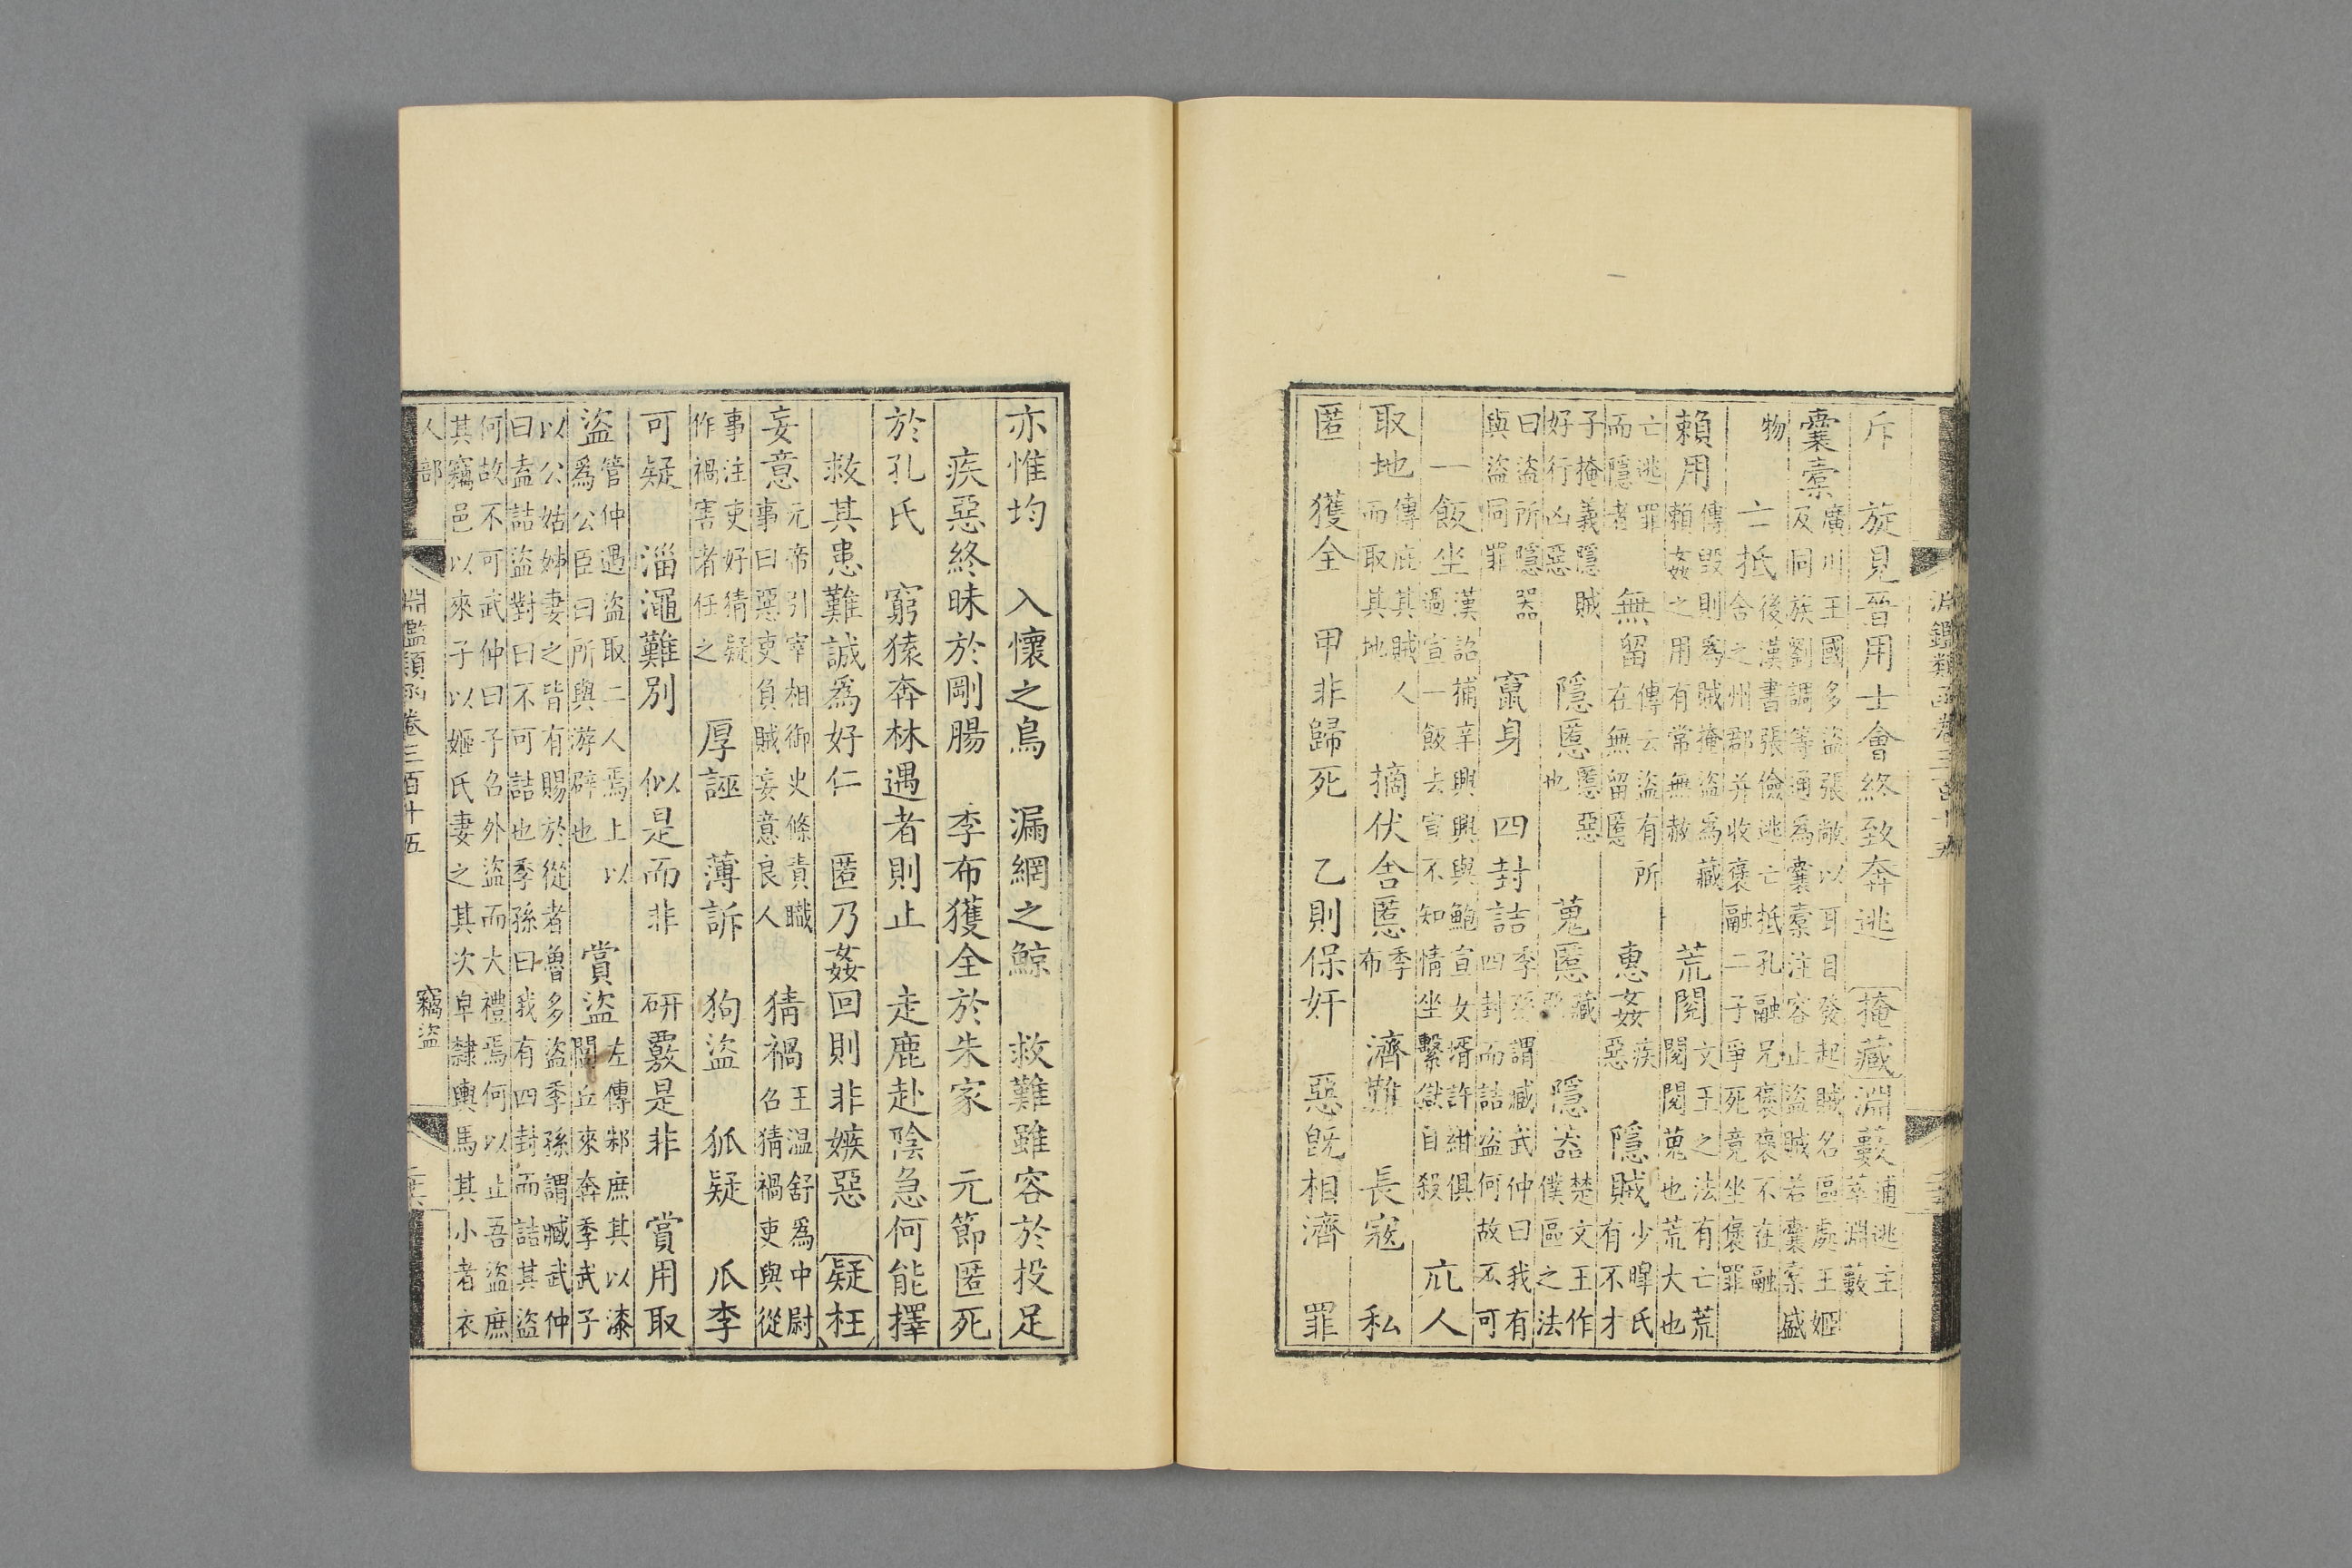 斥　旋見晉用士會終致奔逃　掩藏　淵藪逋逃主萃淵藪
囊橐廣川王國多盜張敞以耳目發起賊名區處王姬反同族劉調等通為囊橐注容止盜賊若囊橐盛
物　亡抵後漢書張儉逃亡抵孔融兄褒褒不在融舍之州郡并收褒融二子爭死竟坐褒罪
賴用傳毀則為賊掩盜為藏賴姦之用有常無赦　荒閱文王之法有亡荒閱閱蒐也荒大也
亡逃罪而隱者　無留傳云盜有所在無留匿　惠姦疾惡　隱賊少暤氏有不才
子掩義隱賊好行凶惡　隱慝慝惡也　蒐慝藏惡　隱器楚文王作僕區之法
曰盜所隱器與盜同罪　竄身　四封詰季孫謂臧武仲曰我有四封而詰盜何故不可
一飯坐漢詔捕辛興興與鮑宣女壻許紺俱過宣一飯去宣不知情坐繫獄自殺　亢人
取地傳庇其賊人而取其地　摘伏舍慝季布　濟難　長寇　私
匿　獲全　甲非歸死　乙則保奸　惡旣相濟　罪
亦惟均　入懷之鳥　漏網之鯨　救難雖容於投足
疾惡終昧於剛腸　季布獲全於朱家　元節匿死
於孔氏　窮猿奔林遇者則止　走鹿赴陰急何能擇
救其患難誠爲好仁　匿乃姦回則非嫉惡　疑枉
妄意元帝引宰相御史條責職事曰惡吏負賊妄意良人　猜禍王温舒爲中尉召猜禍吏與從
事注吏好猜疑作禍害者任之　厚誣　薄訴　狗盜　狐疑　瓜李
可疑　淄澠難別　似是而非　研覈是非　賞用取
盜管仲遇盜取二人焉上以爲公臣曰所與游辟也以　賞盜左傳邾庶其以漆閭丘來奔季武子
以公姑姊妻之皆有賜於從者魯多盜季孫謂臧武仲曰盍詰盜對曰不可詰也季孫曰我有四封而詰其盜
何故不可武仲曰子召外盜而大禮焉何以止吾盜庶其竊邑以來子以姬氏妻之其次皁隸輿馬其小者衣
人部　竊盜
淵鑑類函卷三百十五